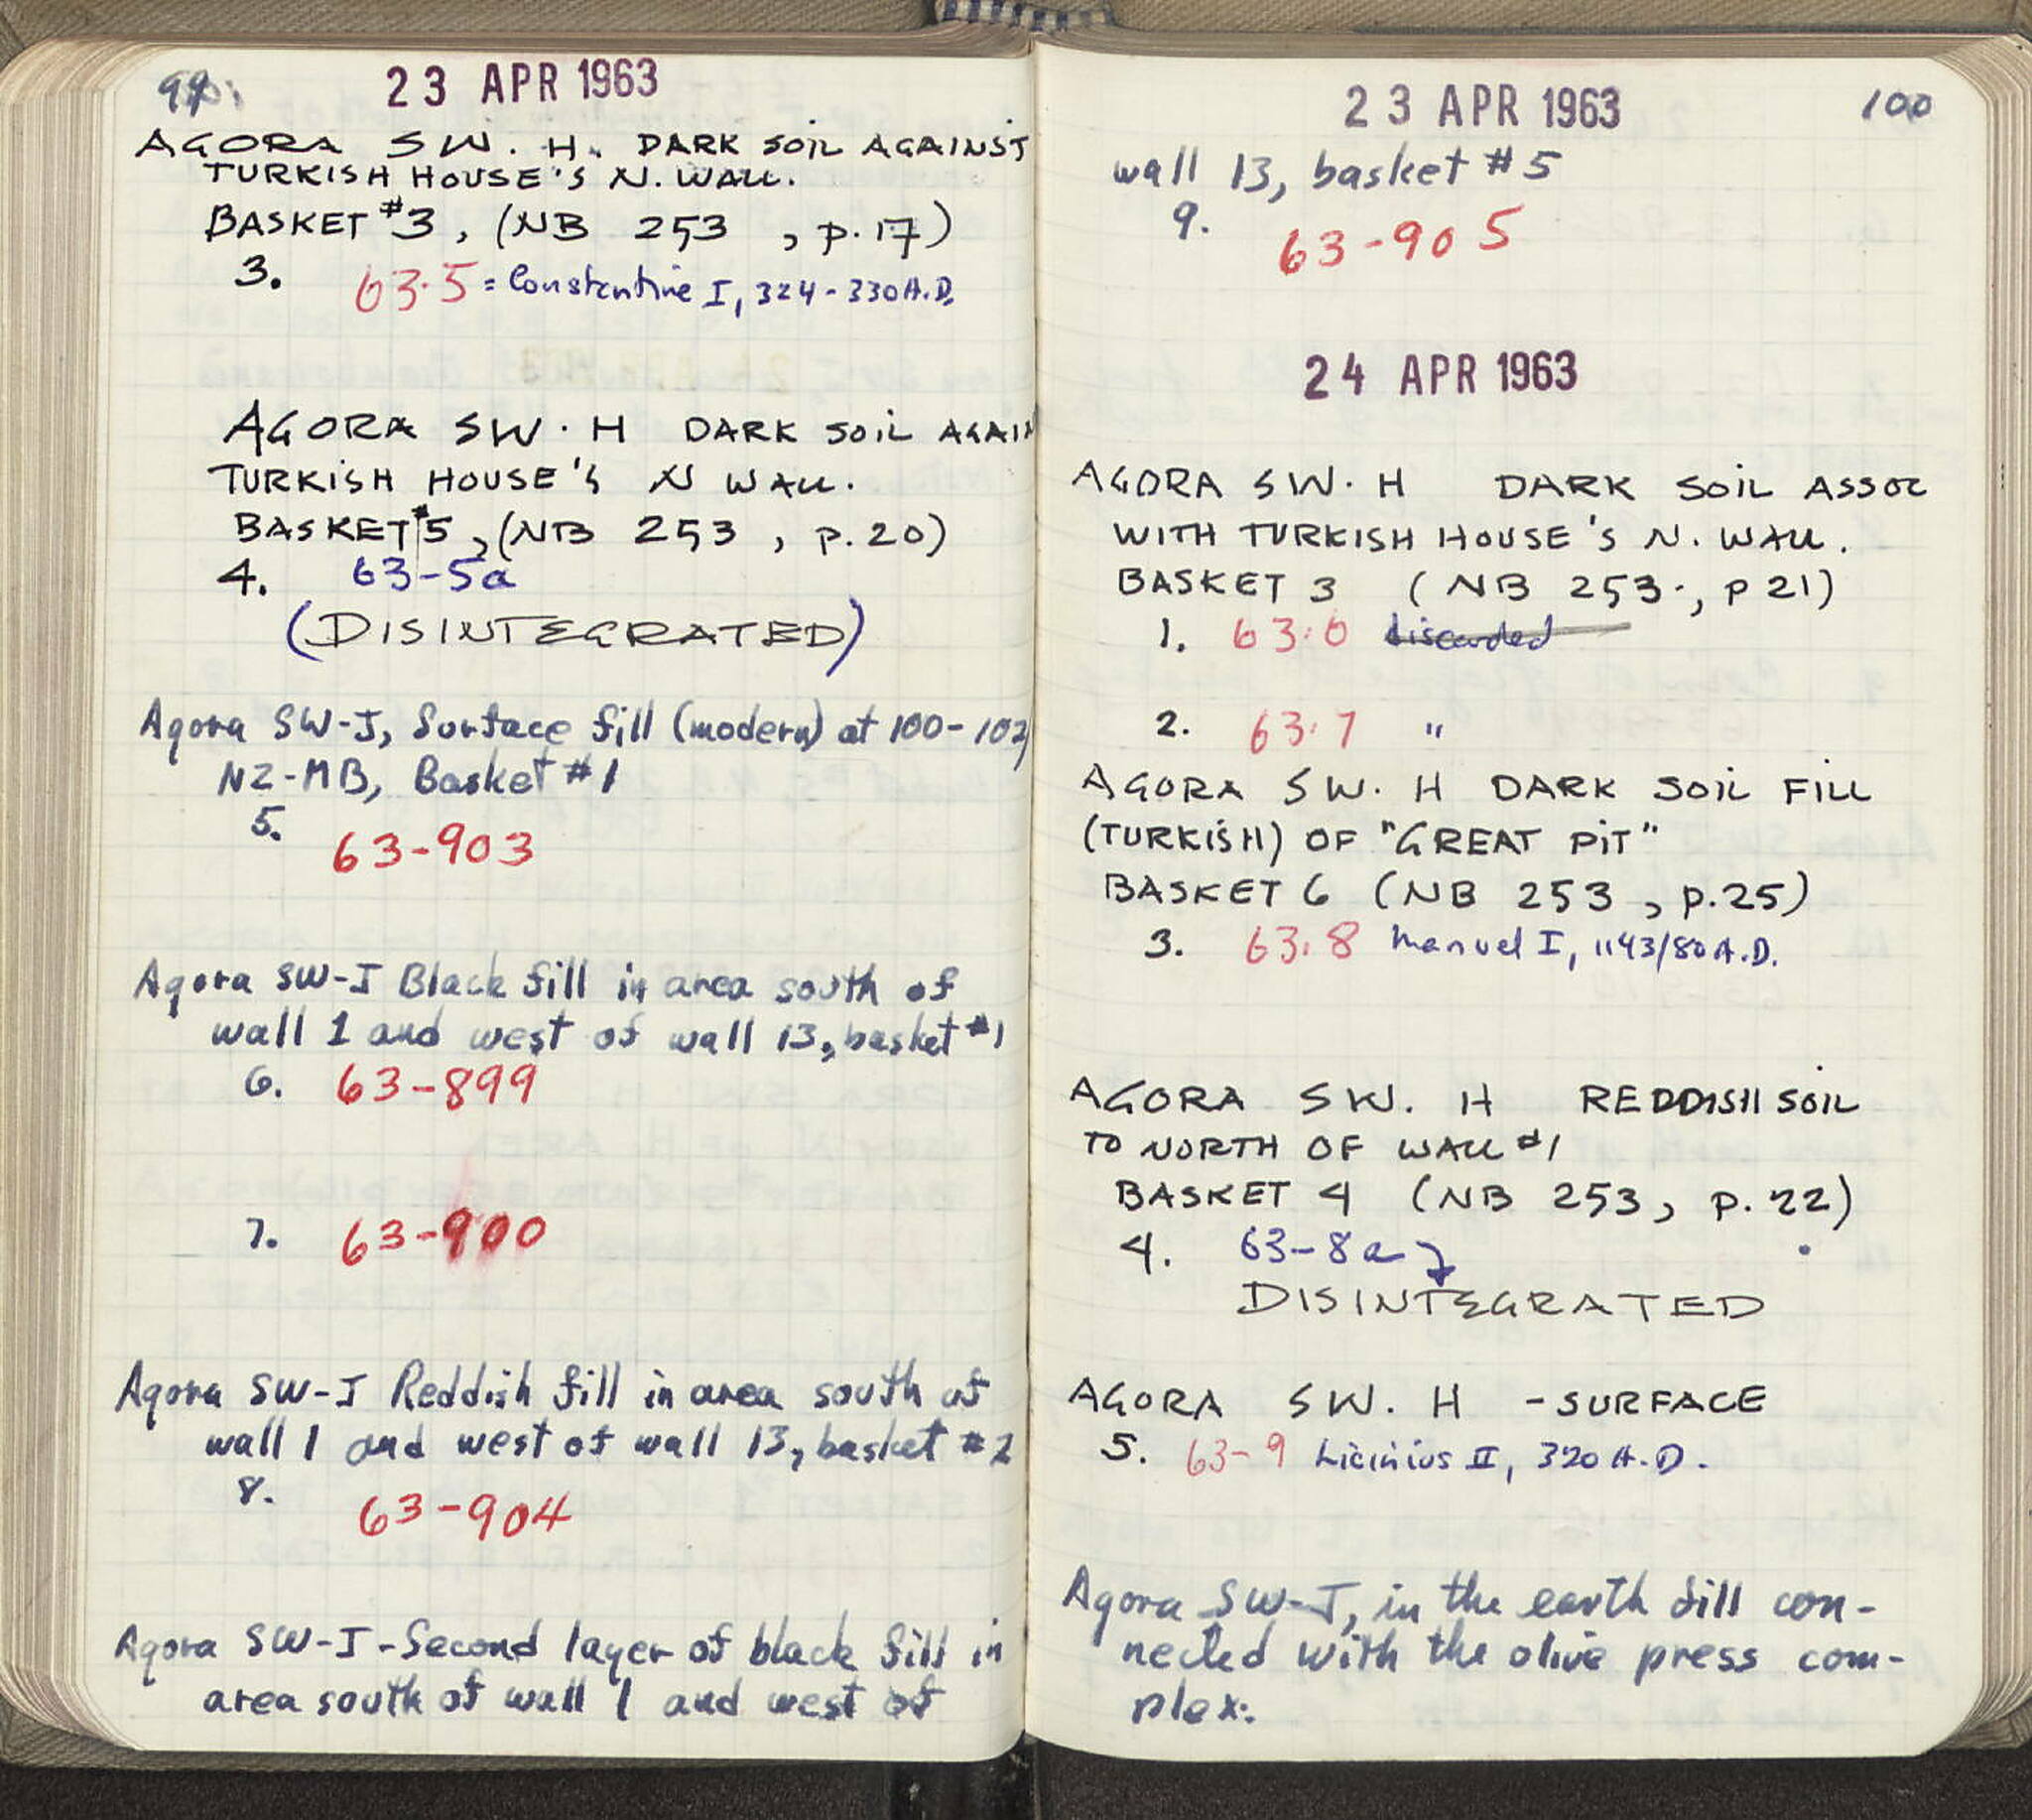 99.
23 APR 1963
AGORA SW. H. DARK SOIL AGAINST
TURKISH HOUSE'S N. WALL.
BASKET #3, (NB 253, p. 17)
3. 63.5 = Constantine I, 324-330 A.D.
AGORA SW. H DARK SOIL AGAIN
TURKISH HOUSE'S N WALL.
BASKET #5, (NB 253, p. 20)
4. 63-5a
(DISINTEGRATED)
Agora SW-J, Surface fill (modern) at 100-102,
NZ-MB, Basket #1
5. 63-903
Agora SW-J Black fill in area south of
wall 1 and west of wall 13, basket #1
6. 63-899
7. 63-900
Agora SW-J Reddish fill in area south of
wall 1 and west of wall 13, basket #2
8. 63-904
Agora SW-J-Second layer of black fill in
area south of wall 1 and west of
23 APR 1963
100
wall 13, basket #5
9. 63-905
24 APR 1963
AGORA SW. H DARK SOIL ASSOC
WITH TURKISH HOUSE'S N. WALL.
BASKET 3 (NB 253., p 21)
1. 63.6 discarded
2. 63.7 "
AGORA SW. H DARK SOIL FILL
(TURKISH) OF "GREAT PIT"
BASKET 6 (NB 253, p. 25)
3. 63.8 Manuel I, 1143/80 A.D.
AGORA SW. H REDDISH SOIL
TO NORTH OF WALL #1
BASKET 4 (NB 253, p. 22)
4. 63-8a
DISINTEGRATED
AGORA SW. H - SURFACE
5. 63-9 Licinius II, 320 A.D.
Agora SW-J, in the earth fill con-
nected with the olive press com-
plex.